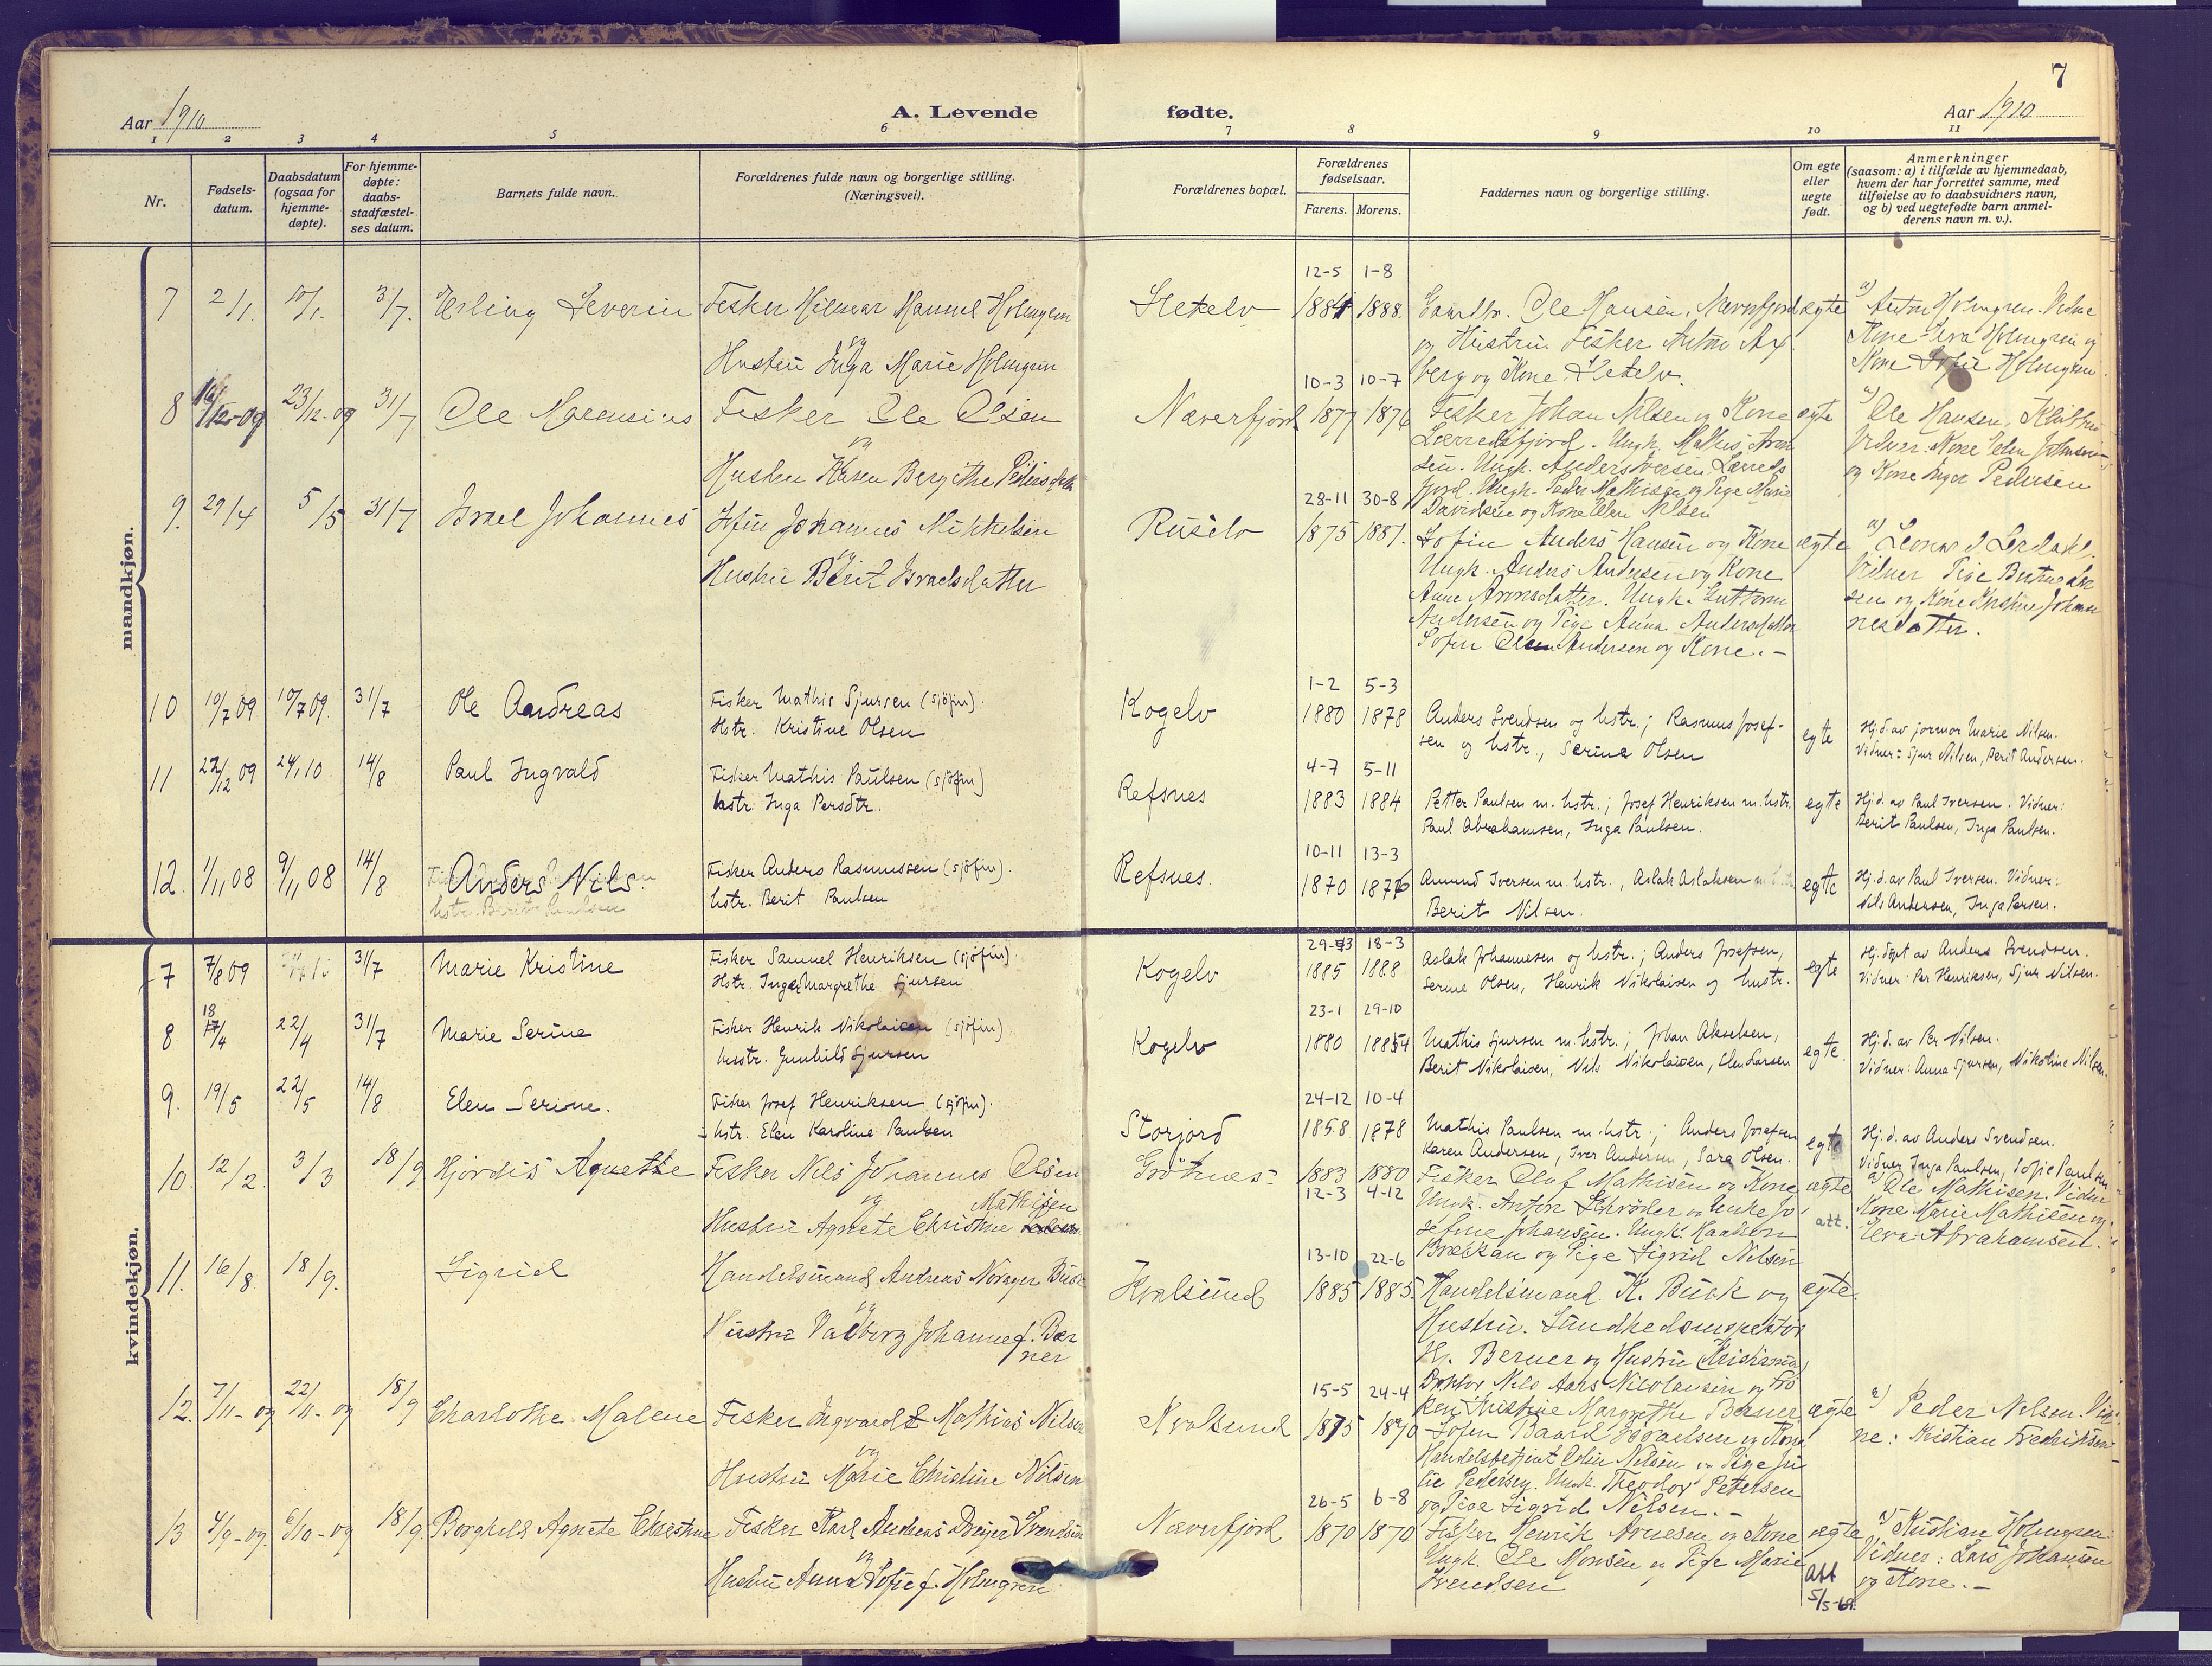 7
Aar 1910
A. Levende
fødte.
Aar 1910
1 2 3 4 5 6 7 8 9 10 11
Nr.
Fødsels-
datum.
Daabsdatum
(ogsaa for
hjemme-
døpte).
For hjemme-
døpte:
daabs-
stadfæstel-
ses datum.
Barnets fulde navn.
Forældrenes fulde navn og borgerlige stilling.
(Næringsvei).
Forældrenes bopæl.
Forældrenes
fødselsaar.
Farens. Morens.
Faddernes navn og borgerlige stilling.
Om egte
eller
uegte
født.
Anmerkninger
(saasom: a) i tilfælde av hjemmedaab,
hvem der har forrettet samme, med
tilføielse av to daabsvidners navn,
og b) ved uegtefødte barn anmel-
derens navn m. v.).
mandkjøn.
7 2/1. 10/1. 3/7. Erling Severin
Fisker Hilmar Manuel Holmgren
og
Hustru Inga Marie Holmgren
12-5 1-8
1884 1888.
Gaardbr. Ole Hansen, Næverfjord
og Hustru. Fisker Anton
berg og Kone.
egte
a) Anton Holmgren. Vidne
Kone Holmgren og
Kone Sofie Holmgren
8 16/12-09 23/12-09 31/7 Ole
Fisker Ole Olsen
og
Hustru Karen Bergithe Pedersdatter
Næverfjord
10-3 10-7
1877 1876
Fisker Johan Nilsen og Kone
Lærredsfjord. Ungk. Mathis
sen. Ungk. Anders Iversen Lærreds
fjord. Ungk. Peder Mathisen og Pige Marie
Davidsen og Kone Elen Nilsen
egte
a) Ole Hansen,
Vidner: Kone Elen Johnsen
og Kone Inger Pedersen
9. 29/4 5/5 31/7 Israel Johannes
Sjfin Johannes Mikkelsen
og
Hustru Berit Israelsdatter
Ruselv
28-11 30-8
1875 1881.
Sofin Anders Hansen og Kone
Ungk. Anders Andersen og Kone
Anne Aronsdatter. Ungk. Guttorm
Andersen og Pige Anna Andersdatter
Sofin Andersen og Kone. -
egte
a) Leonar J. Lerdahl.
Vidner Pige
sen og Kone Kristine Johan
nesdatter.
10 10/7 09 10/7 09. 31/7 Ole Andreas
Fisker Mathis Sjursen (sjöfin).
Hstr. Kristine Olsen
Kogelv
1-2 5-3
1880 1878
Anders Svendsen og hstr.; Rasmus Josef-
sen og hstr., Serine Olsen
egte
Hj.d. av jormor Marie Nilsen.
Vidner: Sjur Nilsen, Berit Andersen.
11 22/12 09 24/1 10 14/8 Paul Ingvald
Fisker Mathis Paulsen (sjöfin)
hstr. Inga Persdtr.
Refsnes
4-7 5-11
1883 1884
Petter Paulsen m. hstr.; Josef Henriksen m. hstr.
Paul Abrahamsen, Inga Paulsen.
egte
Hj.d. av Paul Iversen. Vidner:
Berit Paulsen, Inga Paulsen.
12. 1/11 08 9/11 08 14/8 Anders Nils.
Fisker Anders Rasmussen (sjöfin).
hstr. Berit Paulsen
Refsnes.
10-11 13-3
1870 1876
Amund Iversen m. hstr., Aslak Aslaksen
Berit Nilsen.
egte
Hj.d. av Paul Iversen. Vidner:
Nils Andersen, Inga Persen.
kvindekjøn.
7 7/8 09 31/7 Marie Kristine
Fisker Samuel Henriksen (sjöfin)
Hstr. Inger Margrethe Sjursen
Kogelv
29-3 18-3
1885 1888
Aslak Johannesen og hstr.; Anders Josefsen,
Serine Olsen, Henrik Nikolaisen og hustr.
egte
Hj.döpt av Anders Svendsen.
Vidner: Per Henriksen, Sjur Nilsen.
8 18/4 22/4 31/7 Marie Serine
Fisker Henrik Nikolaisen (sjöfin)
hustr. Gunhild Sjursen
Kogelv
23-1 29-10
1880 1884
Mathis Sjursen m. hstr.; Johan Akselsen,
Berit Nikolaisen, Nils Nikolaisen, Elen Larsen
egte.
Hj.d. av Per Nilsen.
Vidner: Anna Sjursen, Nikoline Nilsen.
9. 19/5 22/5 14/8 Elen Serine.
Fisker Josef Henriksen (sjöfin).
hstr. Elen Karoline Paulsen
Storjord
24-12 10-4
1858 1878
Mathis Paulsen m. hstr.; Anders Josefsen
Karen Andersen, Iver Andersen, Sara Olsen.
egte
Hj.d. av Anders Svendsen.
Vidner Inga Paulsen, Sofie Paulsen.
10. 12/2. 3/3 18/9 Hjördis Agnethe
Fisker Nils Johannes Olsen
og Mathisen
Hustru Agnete Christine
Grötnes
1883 1880
12-3 4-12
Fisker Oluf Mathisen og Kone
Ungk. Anton Schröder og Enke Jo
sefine Johansen. Ungk. Haakon
Brækkan og Pige Sigrid Nilsen
egte
att.
a) Ole Mathisen. Vidne
Kone Marie Mathisen og
Abrahamsen.
11. 16/8. 18/9. Sigrid
Handelsmand Andreas Norager Buck
og
Hustru Valborg Johanne f. Ber
ner
Kvalsund
13-10 22-6
1885 1885.
Handelsmand K. Buck og
Hustru. Sundhedsinspektör
Hj. Berner og Hustru (Kristiania)
Doktor Nils Aars Nicolaysen og Frö
ken Margrethe Berner
egte.
12. 7/11-09 22/11-09 18/9 Charlothe Malene
Fisker Ingvard Mathias Nilsen
og
Hustru Marie Christine Nilsen
Kvalsund
15-5 24-4
1875 1870
Sofin Baard Israelsen og Kone
Handelsbetjent Edin Nilsen og Pige Ju
lie Pedersen. Ungk. Theodor Petersen
og Pige Sigrid Nilsen. -
egte
a) Peder Nilsen. Vid
ne: Kristian Fredriksen
13 4/9-09. 6/10-09 18/9. Borghild Agnete Christine
Fisker Karl Andreas Dreyer Svendsen
og
Hustru Anna Sofie f. Holmgren
Næverfjord
26-5 6-8
1870 1870
Fisker Henrik Arnesen og Kone
Ungk. Ole Monsen og Pige Marie
Svendsen
egte
att
5/5-69.
a) Kristian Holmgren.
Vidner: Lars Johansen
og Kone. -